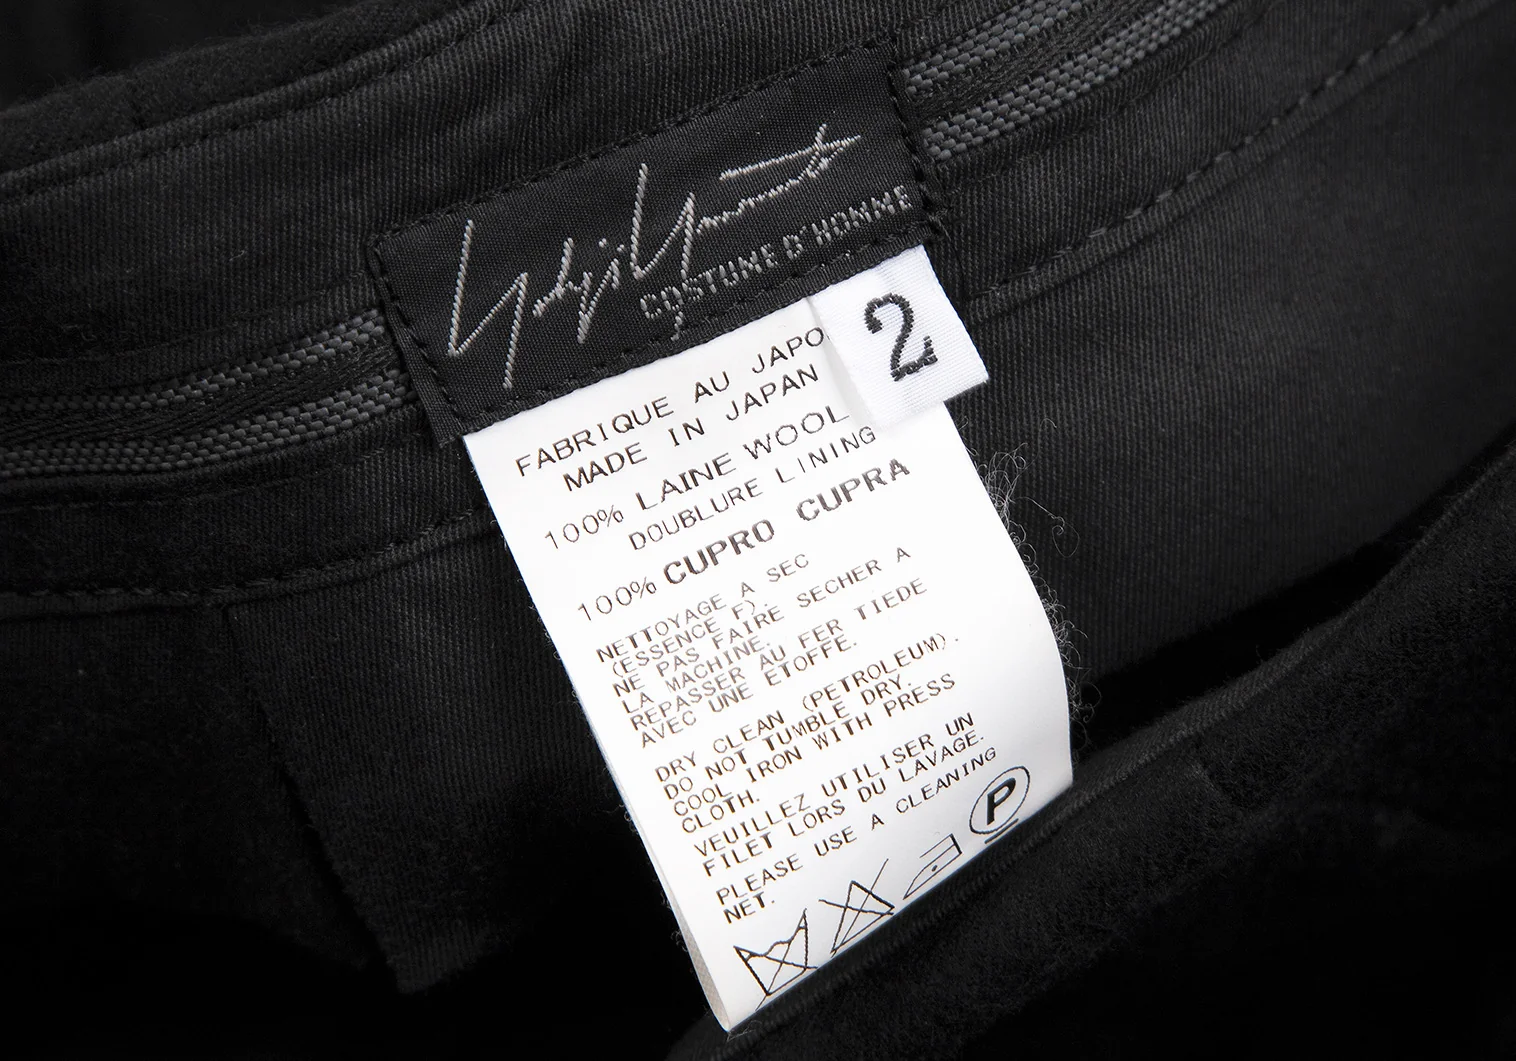 Yohji Yamamoto
COSTUME D'HOMME
2
FABRIQUE AU JAPO
MADE IN JAPAN
100% LAINE WOOL
DOUBLURE LINING
100% CUPRO CUPRA
NETTOYAGE A SEC
(ESSENCE F).
NE PAS FAIRE SECHER A
LA MACHINE.
REPASSER AU FER TIEDE
AVEC UNE ETOFFE.
DRY CLEAN (PETROLEUM).
DO NOT TUMBLE DRY.
COOL IRON WITH PRESS
CLOTH.
VEUILLEZ UTILISER UN
FILET LORS DU LAVAGE.
PLEASE USE A CLEANING
NET.
P